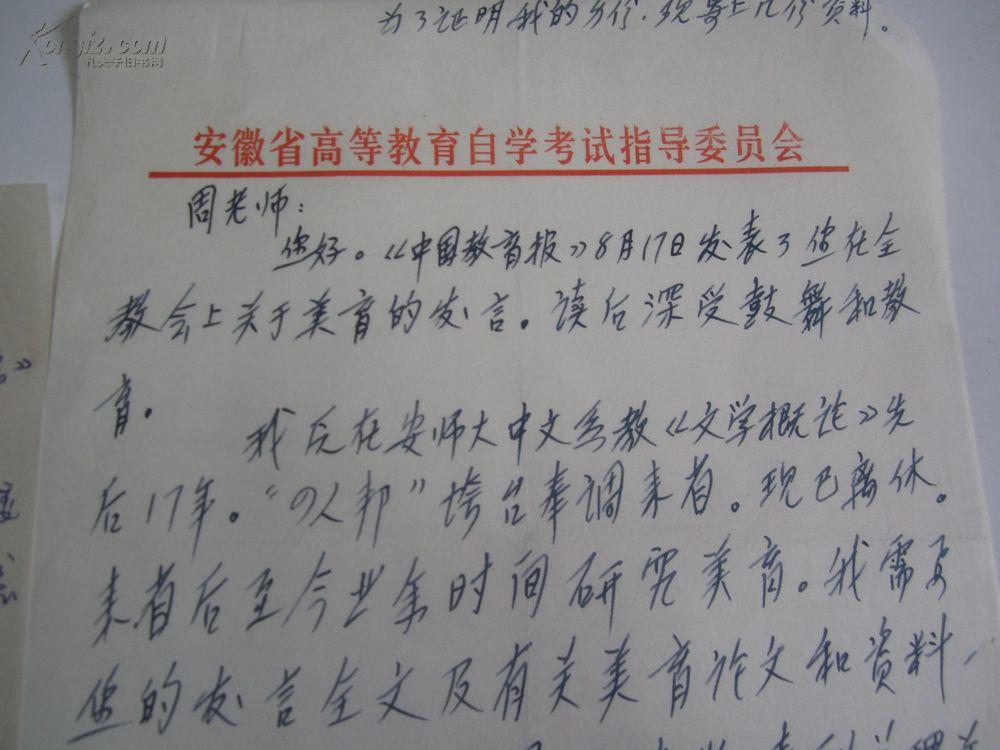 为了证明我的身份,现寄上几份资料。
Kongfz.com
孔夫子旧书网
安徽省高等教育自学考试指导委员会
周老师:
您好。《中国教育报》8月17日发表了您在全
教会上关于美育的发言。读后深受鼓舞和教
育。
我 在安师大中文系教《文学概论》先
后17年。“四人邦”垮台奉调来省。现已离休。
来省后至今业余时间研究美育。我需要
您的发言全文及有关美育论文和资料,